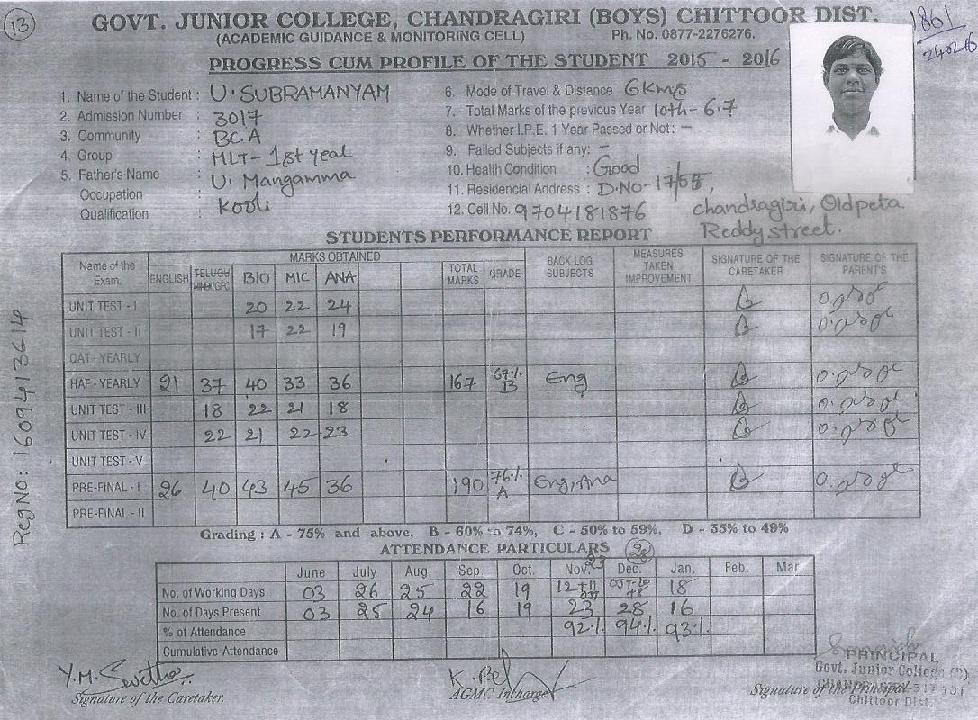 13
GOVT. JUNIOR COLLEGE, CHANDRAGIRI (BOYS) CHITTOOR DIST.
(ACADEMIC GUIDANCE & MONITORING CELL) Ph. No. 0877-2276276.
PROGRESS CUM PROFILE OF THE STUDENT 2015 - 2016
1. Name of the Student : U. SUBRAMANYAM
2. Admission Number : 3017
3. Community : BC.A
4. Group : MLT- 1st year
5. Father's Name : U. Mangamma
Occupation : Kooli
Qualification :
6. Mode of Travel & Distance 6 Kms
7. Total Marks of the previous Year 10th - 6.7
8. Whether I.P.E. 1 Year Passed or Not : -
9. Failed Subjects if any: -
10. Health Condition : Good
11. Residencial Address : D.No-
12. Cell No. 9704181876 chandragiri, Oldpeta
Reddy street.
STUDENTS PERFORMANCE REPORT
Name of the Exam. MARKS OBTAINED TOTAL MARKS GRADE BACK LOG SUBJECTS MEASURES TAKEN IMPROVEMENT SIGNATURE OF THE CARETAKER SIGNATURE OF THE PARENT'S
ENGLISH TELUGU BIO MIC ANA
UNIT TEST - I 20 22 24
UNIT TEST - II 17 22 19
QAT - YEARLY
HAF - YEARLY 21 37 40 33 36 167 Eng
UNIT TEST - III 18 22 21 18
UNIT TEST - IV 22 21 22 23
UNIT TEST - V
PRE-FINAL - I 26 40 43 45 36 190 76% A Eng, Ana
PRE-FINAL - II
Reg No: 1609413614
Grading : A - 75% and above, B - 60% to 74%, C - 50% to 59%, D - 35% to 49%
ATTENDANCE PARTICULARS
June July Aug Sep Oct. Nov. Dec. Jan. Feb. Mar
No. of Working Days 03 26 25 22 19 18
No. of Days Present 03 25 24 16 19 23 28 16
% of Attendance 92% 94% 93%
Cumulative Attendance
Signature of the Caretaker.
AGMC Incharge
Signature of the Principal
PRINCIPAL
Govt. Junior College (B)
Chittoor Dist.